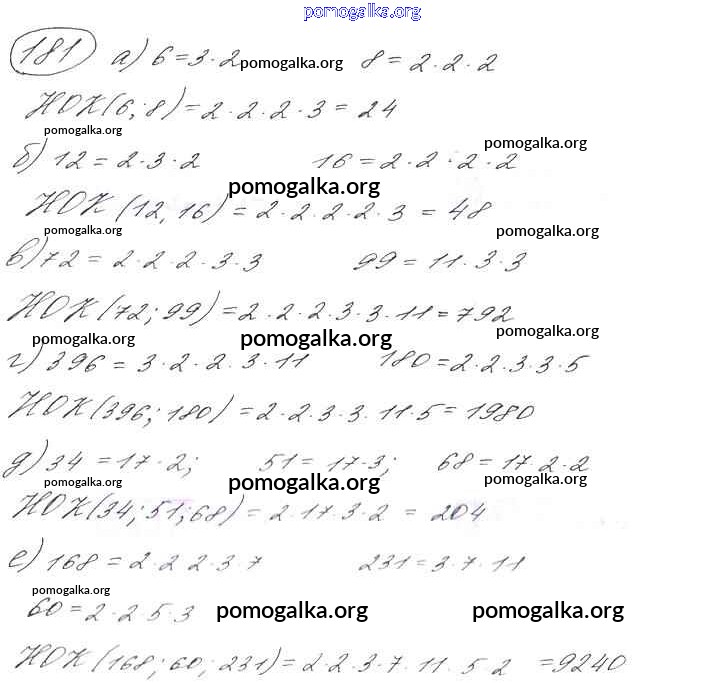 pomogalka.org
181 а) 6 = 3 · 2 pomogalka.org 8 = 2 · 2 · 2
НОК(6; 8) = 2 · 2 · 2 · 3 = 24
pomogalka.org pomogalka.org
б) 12 = 2 · 3 · 2 16 = 2 · 2 · 2 · 2
pomogalka.org
НОК (12, 16) = 2 · 2 · 2 · 2 · 3 = 48
pomogalka.org pomogalka.org
в) 72 = 2 · 2 · 2 · 3 · 3 99 = 11 · 3 · 3
НОК (72; 99) = 2 · 2 · 2 · 3 · 3 · 11 = 792
pomogalka.org pomogalka.org pomogalka.org
г) 396 = 3 · 2 · 2 · 3 · 11 180 = 2 · 2 · 3 · 3 · 5
НОК(396; 180) = 2 · 2 · 3 · 3 · 11 · 5 = 1980
д) 34 = 17 · 2; 51 = 17 · 3; 68 = 17 · 2 · 2
pomogalka.org pomogalka.org pomogalka.org
НОК(34; 51; 68) = 2 · 17 · 3 · 2 = 204
е) 168 = 2 · 2 2 · 3 · 7 231 = 3 · 7 · 11
pomogalka.org
60 = 2 · 2 5 · 3 pomogalka.org pomogalka.org
НОК (168; 60; 231) = 2 · 2 · 3 · 7 · 11 · 5 2 = 9240